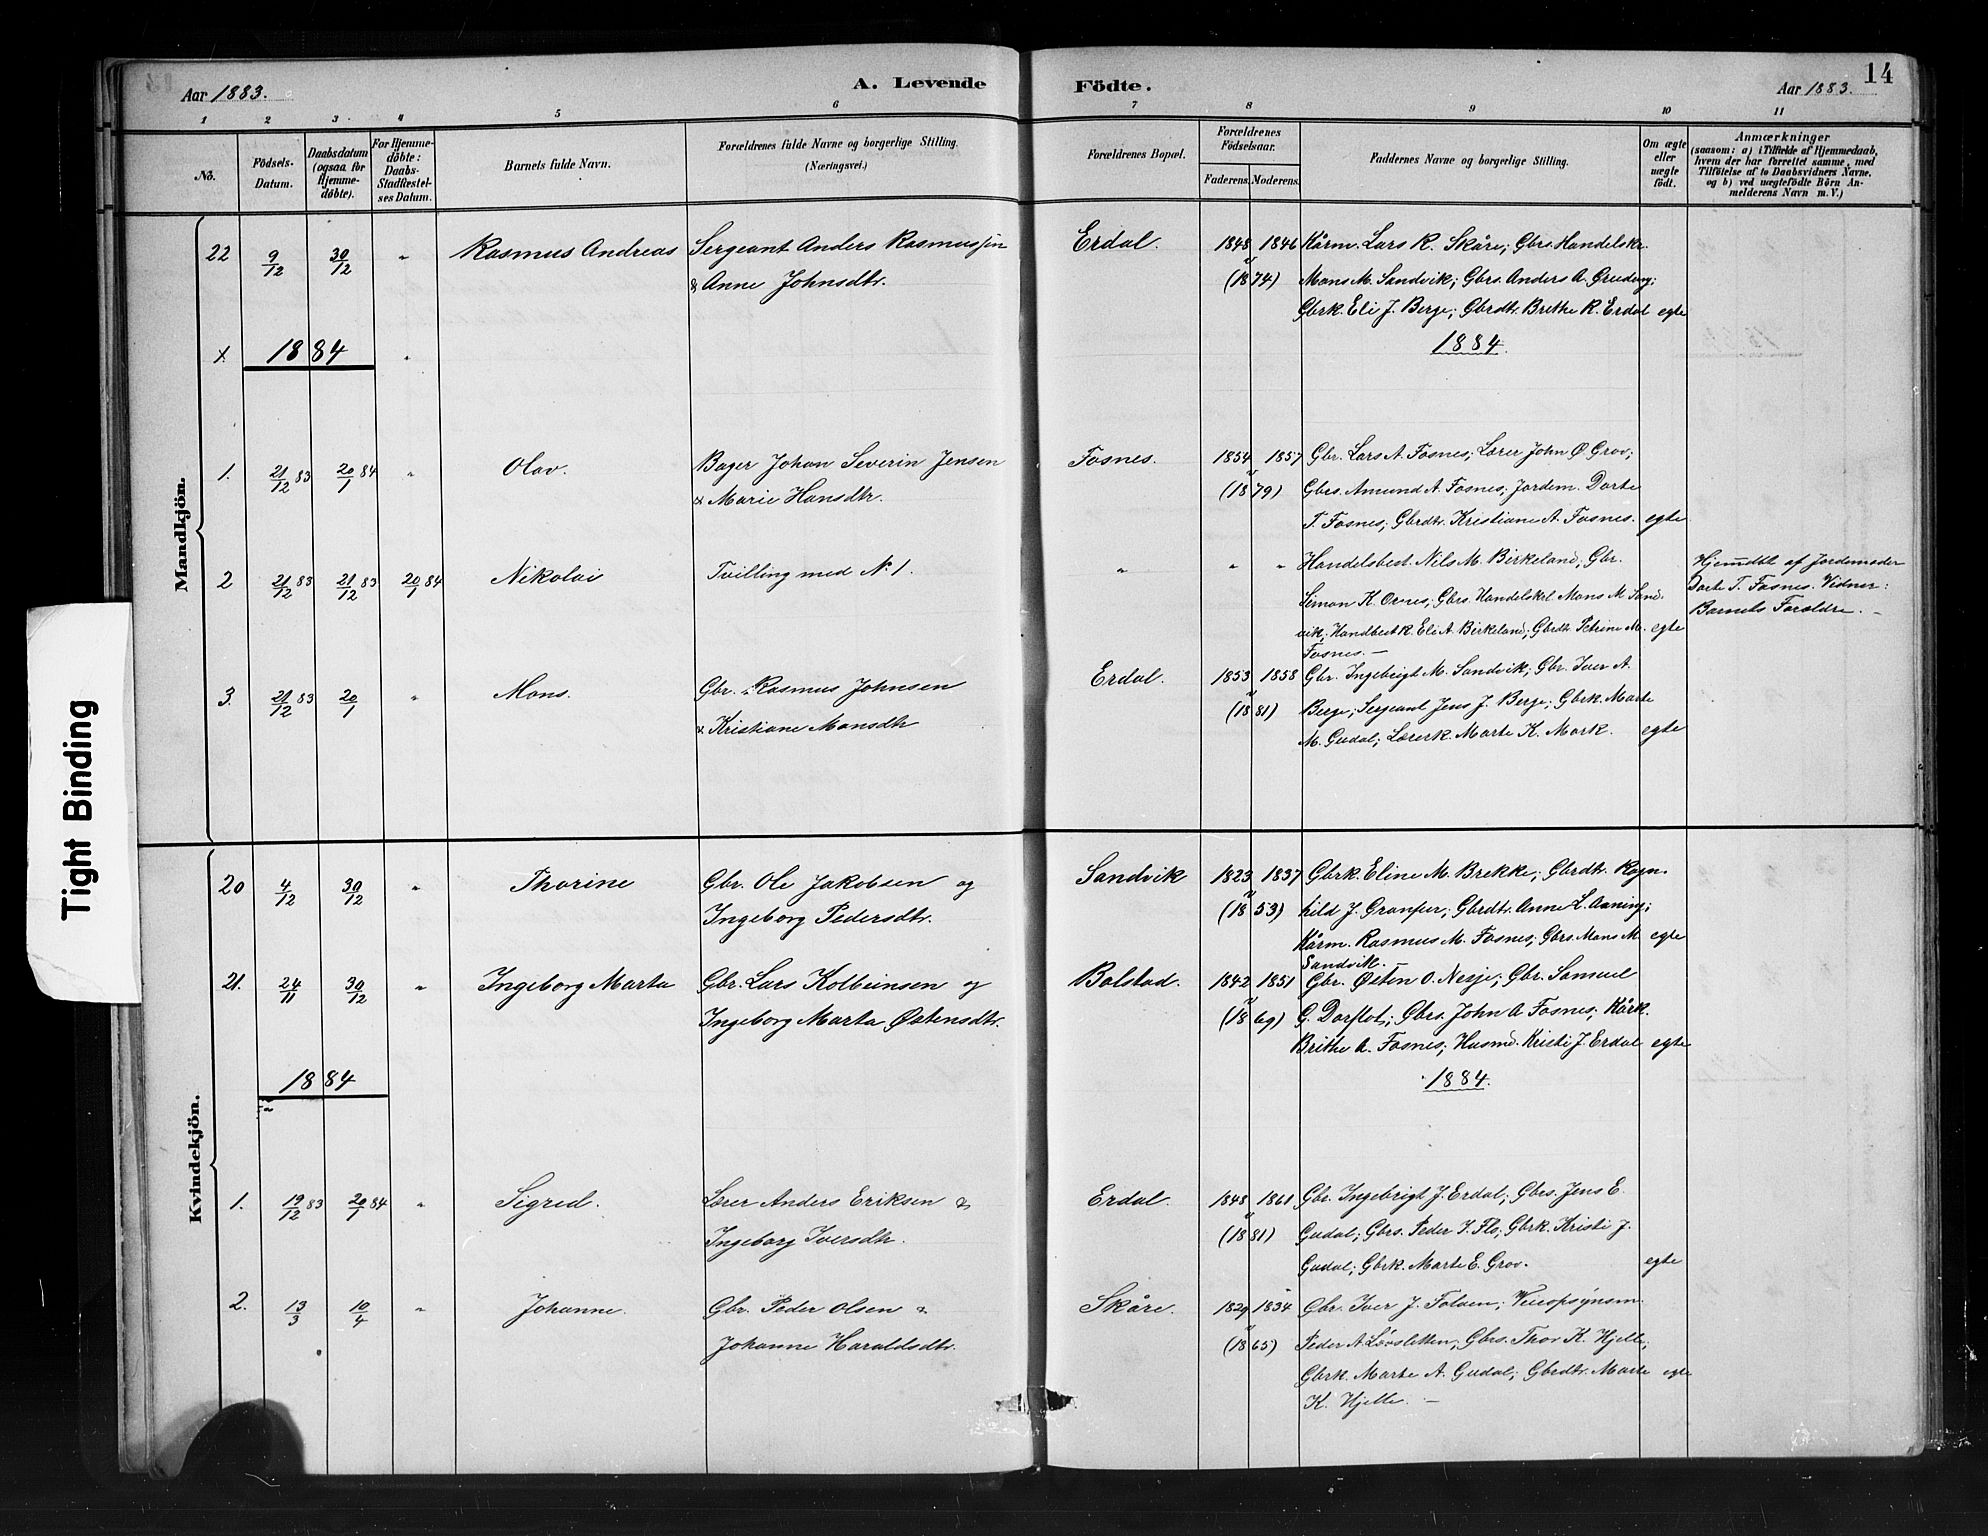 Aar 1883.
A. Levende Födte.
Aar 1883.
14
1 2 3 4 5 6 7 8 9 10 11
No.
Födsels-Datum.
Daabsdatum (ogsaa for Hjemme-döbte).
For Hjemme-döbte: Daabs-Stadfæstel-ses Datum.
Barnets fulde Navn.
Forældrenes fulde Navne og borgerlige Stilling.
(Næringsvei.)
Forældrenes Bopæl.
Forældrenes Födselsaar.
Faderens. Moderens.
Faddernes Navne og borgerlige Stilling.
Om ægte eller uægte födt.
Anmærkninger
(saasom: a) i Tilfælde af Hjemmedaab,
hvem der har forrettet samme, med
Tilföielse af to Daabsvidners Navne,
og b) ved uægtefödte Börn An-
melderens Navn m. V.)
Mandkjön.
22 9/12 30/12 " Rasmus Andreas Sergeant Anders Rasmussen Erdal. 1848 1846 Kårm. Lars R. Skåre; Gbrs. Handelskr.
& Anne Johnsdtr. (1874) Mons M. Sandvik; Gbrs. Anders A.
Gbrk. Eli J. Berge; Gbrdtr. Brithe R. Erdal egte
1884 " 1884.
1. 21/12 83 20/1 84 " Olav. Bager Johan Severin Jensen Fosnes. 1854 1857 Gbr. Lars A. Fosnes; Lærer John O. Grov;
& Marie Hansdtr. (1879) Gbrs. Amund A. Fosnes; Jordem. Dorte
T. Fosnes; Gbrdtr. Kristiane A. Fosnes. egte
2 21/12 83 21/12 83 20/1 84 Nikolai Tvilling med N. 1. " " " Handelsbest. Nils M. Birkeland; Gbr. Hjemdbt af Jordemoder
Simon K. Ornes; Gbrs. Handelskrl. Mons M. Sand- Dorte T. Fosnes. Vidner:
vik; Handbest K. Eli A. Birkeland; Gbrdtr. Petrine M. egte Barnets Forældre. -
Fosnes. -
3. 21/12 83 20/1 " Mons. Gbr. Rasmus Johnsen Erdal. 1853 1858 Gbr. Ingebrigt M. Sandvik; Gbr. Iver A.
& Kristiane Monsdtr (1881) Berge; Sergeant Jens J. Berge; Gbrk. Marte
M. Gudal; Lærerk. Marte K. Mark. egte
Kvindekjön.
20 4/12 30/12 " Thorine Gbr. Ole Jakobsen og Sandvik 1823 1837 Gbrk. Eline M. Brekke; Gbrdtr. Ragn-
Ingeborg Pedersdtr. (1853) hild J. ; Gbrdtr. Anne L. Aaning;
Kårm. Rasmus M. Fosnes; Gbrs. Mons M. egte
Sandvik. -
21. 24/11 30/12 " Ingeborg Marta Gbr. Lars Kolbeinsen og Bolstad. 1842 1851 Gbr. Østen O. Nesje; Gbr. Samuel
Ingeborg Marta Østensdtr. (1869) G. Dorflot; Gbrs. John A Fosnes; Kårk.
Brithe A. Fosnes; Husmd. Kristi J. Erdal egte
1884 1884.
1. 19/12 83 20/1 84 " Sigred. Lærer Anders Eriksen & Erdal. 1848 1861 Gbr. Ingebrigt J. Erdal; Gbrs. Jens E.
Ingeborg Iversdtr. (1881) Gudal; Gbrs. Peder I. Flø; Gbrk. Kristi J.
Gudal; Gbrk. Marte E. Grov. egte
2. 13/3 10/4 " Johanne. Gbr. Peder Olsen & Skåre. 1829 1834 Gbr. Iver J. Folven; Veiopsynsm.
Johanne Haraldsdtr. (1865) Peder A. Løvsletten; Gbrs. Thor K. Hjelle;
Gbrk. Marte A. Gudal; Gbrdtr. Marte egte
K. Hjelle. -
Tight Binding